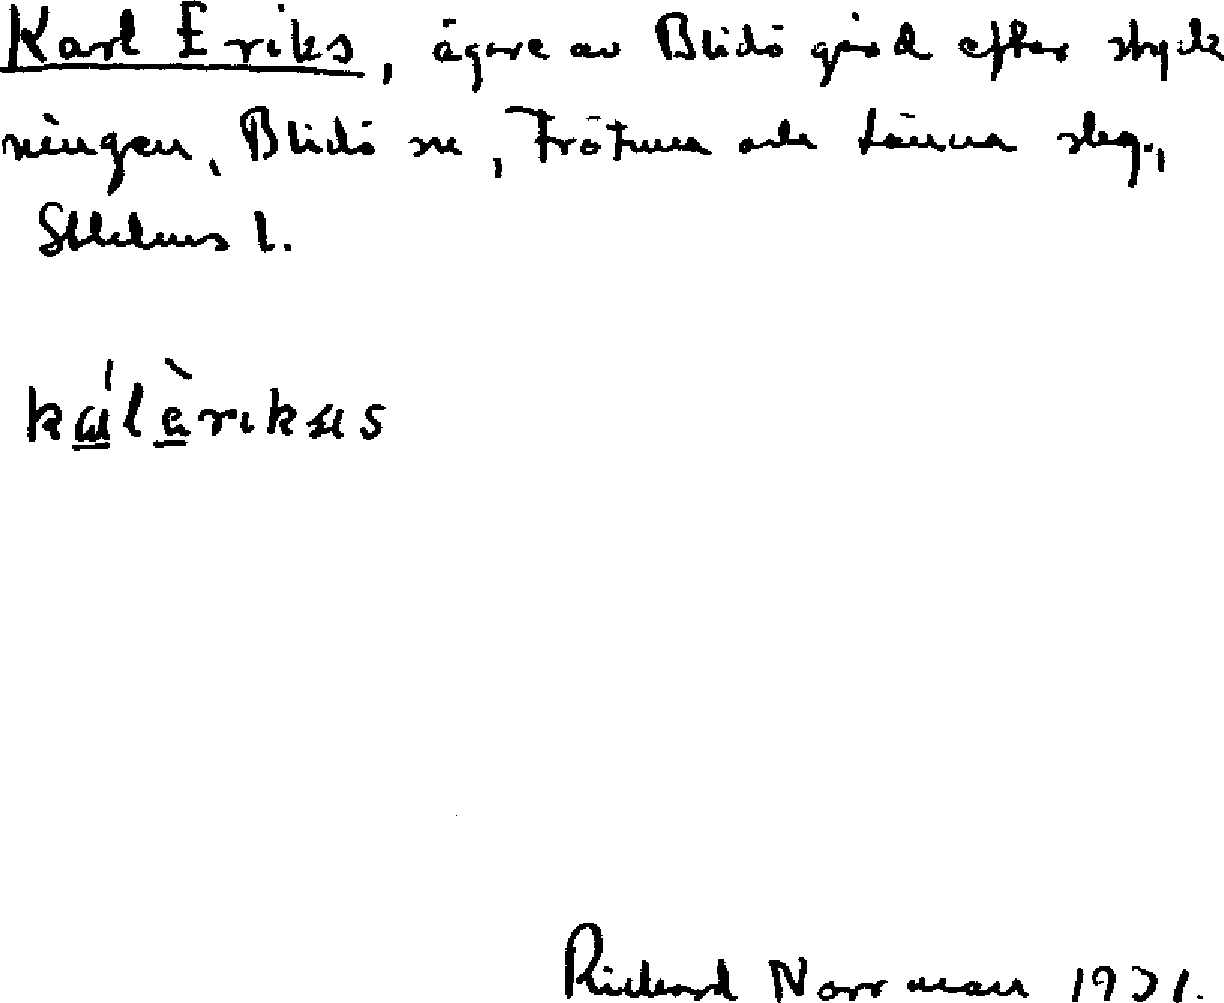 Karl Eriks, ägare av Blidö gård efter styck
ningen, Blidö sn, Frötuna och Länna slag.,
Sthlms l.
Richard Norrman 1931.